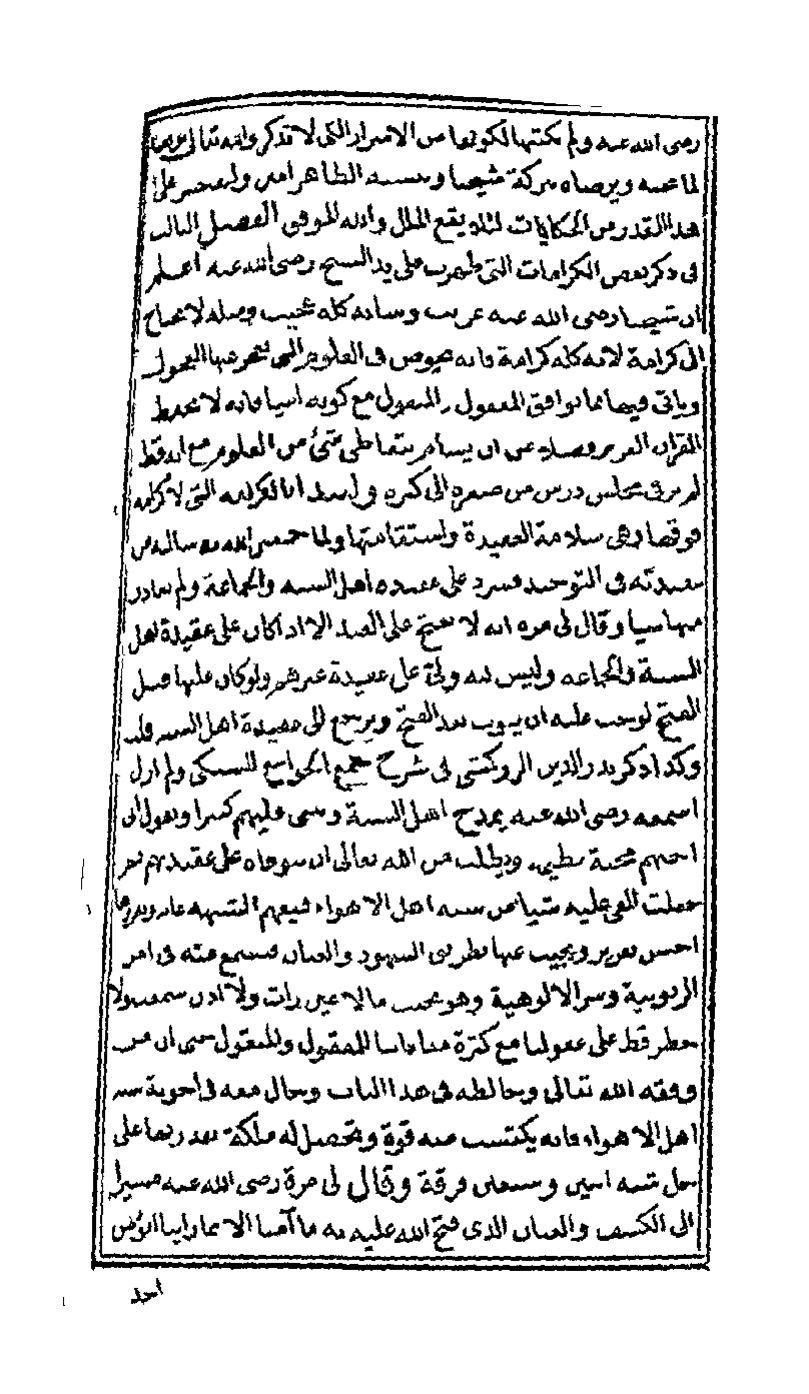 رضى الله عنه ولم نكتبها لكونها من الاسرار التى لا تذكر والله تعالى يوفقنا
لما يحبه ويرضاه ببركة شيخنا ونسبه الطاهر امين ولنقتصر على
هذا القدر من الحكايات لئلا يقع الملل والله الموفق الفصل الثالث
فى ذكر بعض الكرامات التى ظهرت على يد الشيخ رضى الله عنه اعلم
ان شيخنا رضى الله عنه غريب وشانه كله عجيب ومثله لا يحتاج
الى كرامة لانه كله كرامة فانه يخوض فى العلوم التى تعجز عنها الفحول
وياتى فيها بما يوافق المعقول والمنقول مع كونه اميا فانه لا يحفظ
القران العزيز فضلا عن ان يتعاطى شئ من العلوم مع انه قط
لم ير فى مجلس درس من صغره الى كبره ولنبدا بالكرامة التى لا كرامة
فوقها وهى سلامة العقيدة واستقامتها ولما سالته عن
عقيدته فى التوحيد فسرد على عقيدة اهل السنه والجماعة ولم يغادر
منها شيا وقال لى مرة انه لا يفتح على العبد الا اذا كان على عقيدة اهل
السنة والجماعه وليس لله ولى على عقيدة غيرهم ولو كان عليها قبل
الفتح لوجب عليه ان يتوب بعد الفتح ويرجع الى عقيدة اهل السنه قلت
وكذا ذكر بدر الدين الزركشى فى شرح جمع الجوامع للسبكى ولم ازل
اسمعه رضى الله عنه يمدح اهل السنة ويثنى عليهم كثيرا ويقول انى
احبهم محبة عظيمه ويطلب من الله تعالى ان يتوفاه على عقيدتهم ثم
جعلت القى عليه شيا من شبه اهل الاهواء فيفهم الشبهه غاية ويقررها
احسن تقرير ويجيب عنها بطريق الشهود والعيان فنسمع منه فى امر
الربوبية وسر الالوهية وهو يجيب ما لا عين رات ولا اذن سمعت ولا
خطر قط على عقولنا مع كثرة للمعقول والمنقول حتى ان من
وفقه الله تعالى وخالطه فى هذا الباب وجال معه فى اجوبة شبه
اهل الاهواء فانه يكتسب منه قوة وتحصل له ملكة يقدر بها على
حل شبه اثنين وسبعين فرقة وقال لى مرة رضى الله عنه مشيرا
الى الكشف والعيان الذى فتح الله عليه به ما آمنا الا بما راينا ايؤمن
احد